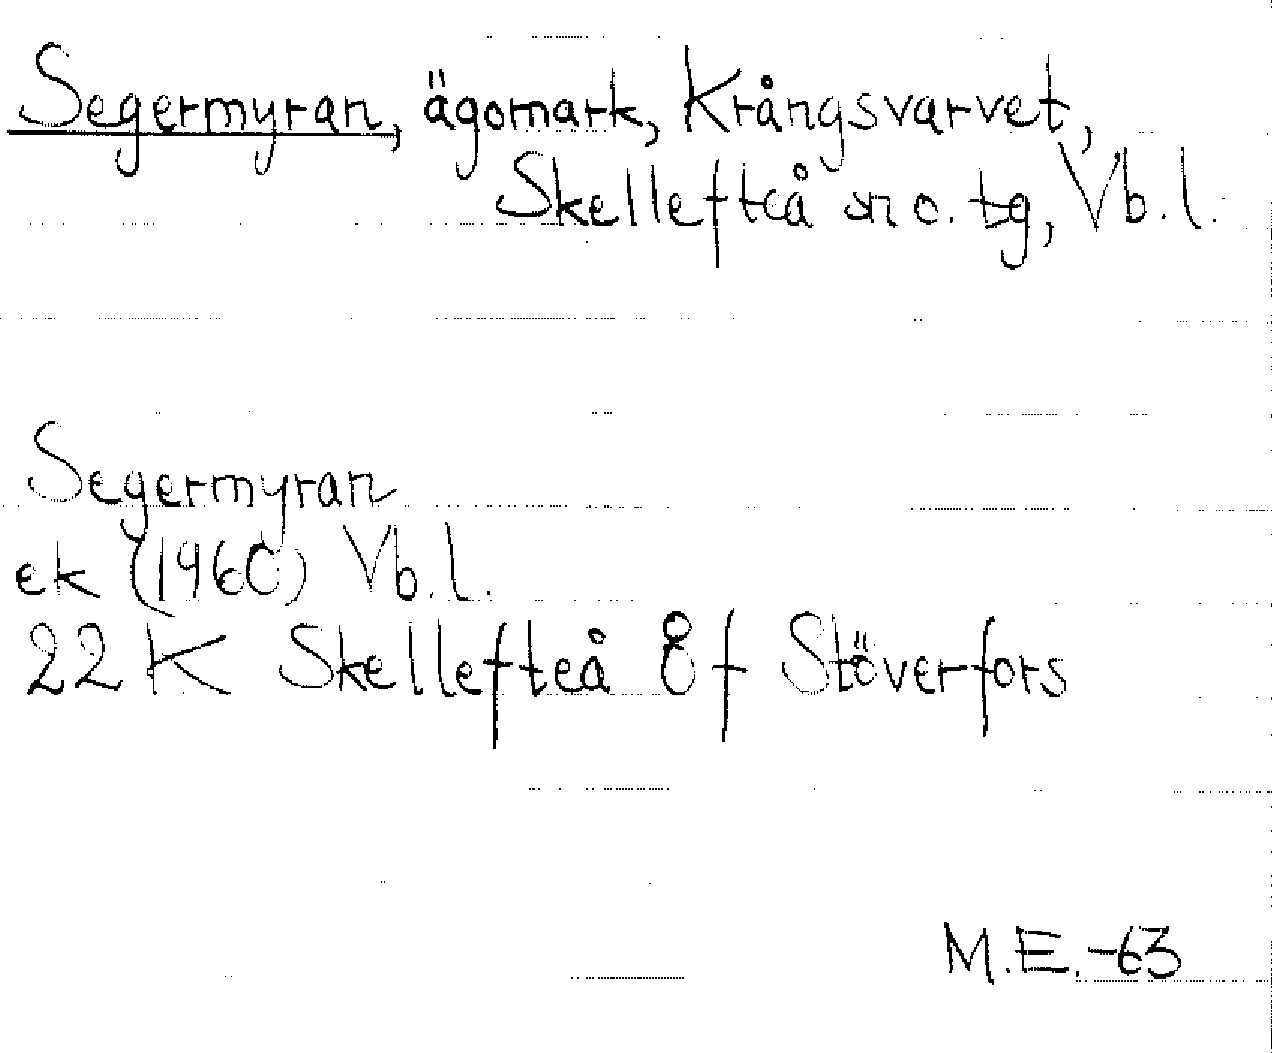 Segermyran, ägomark, Krångsvarvet,
Skellefteå sn o. tg, Vb. l.
Segermyran
ek (1960) Vb. l.
22 K Skellefteå 8 f Stöverfors
M.E.-63